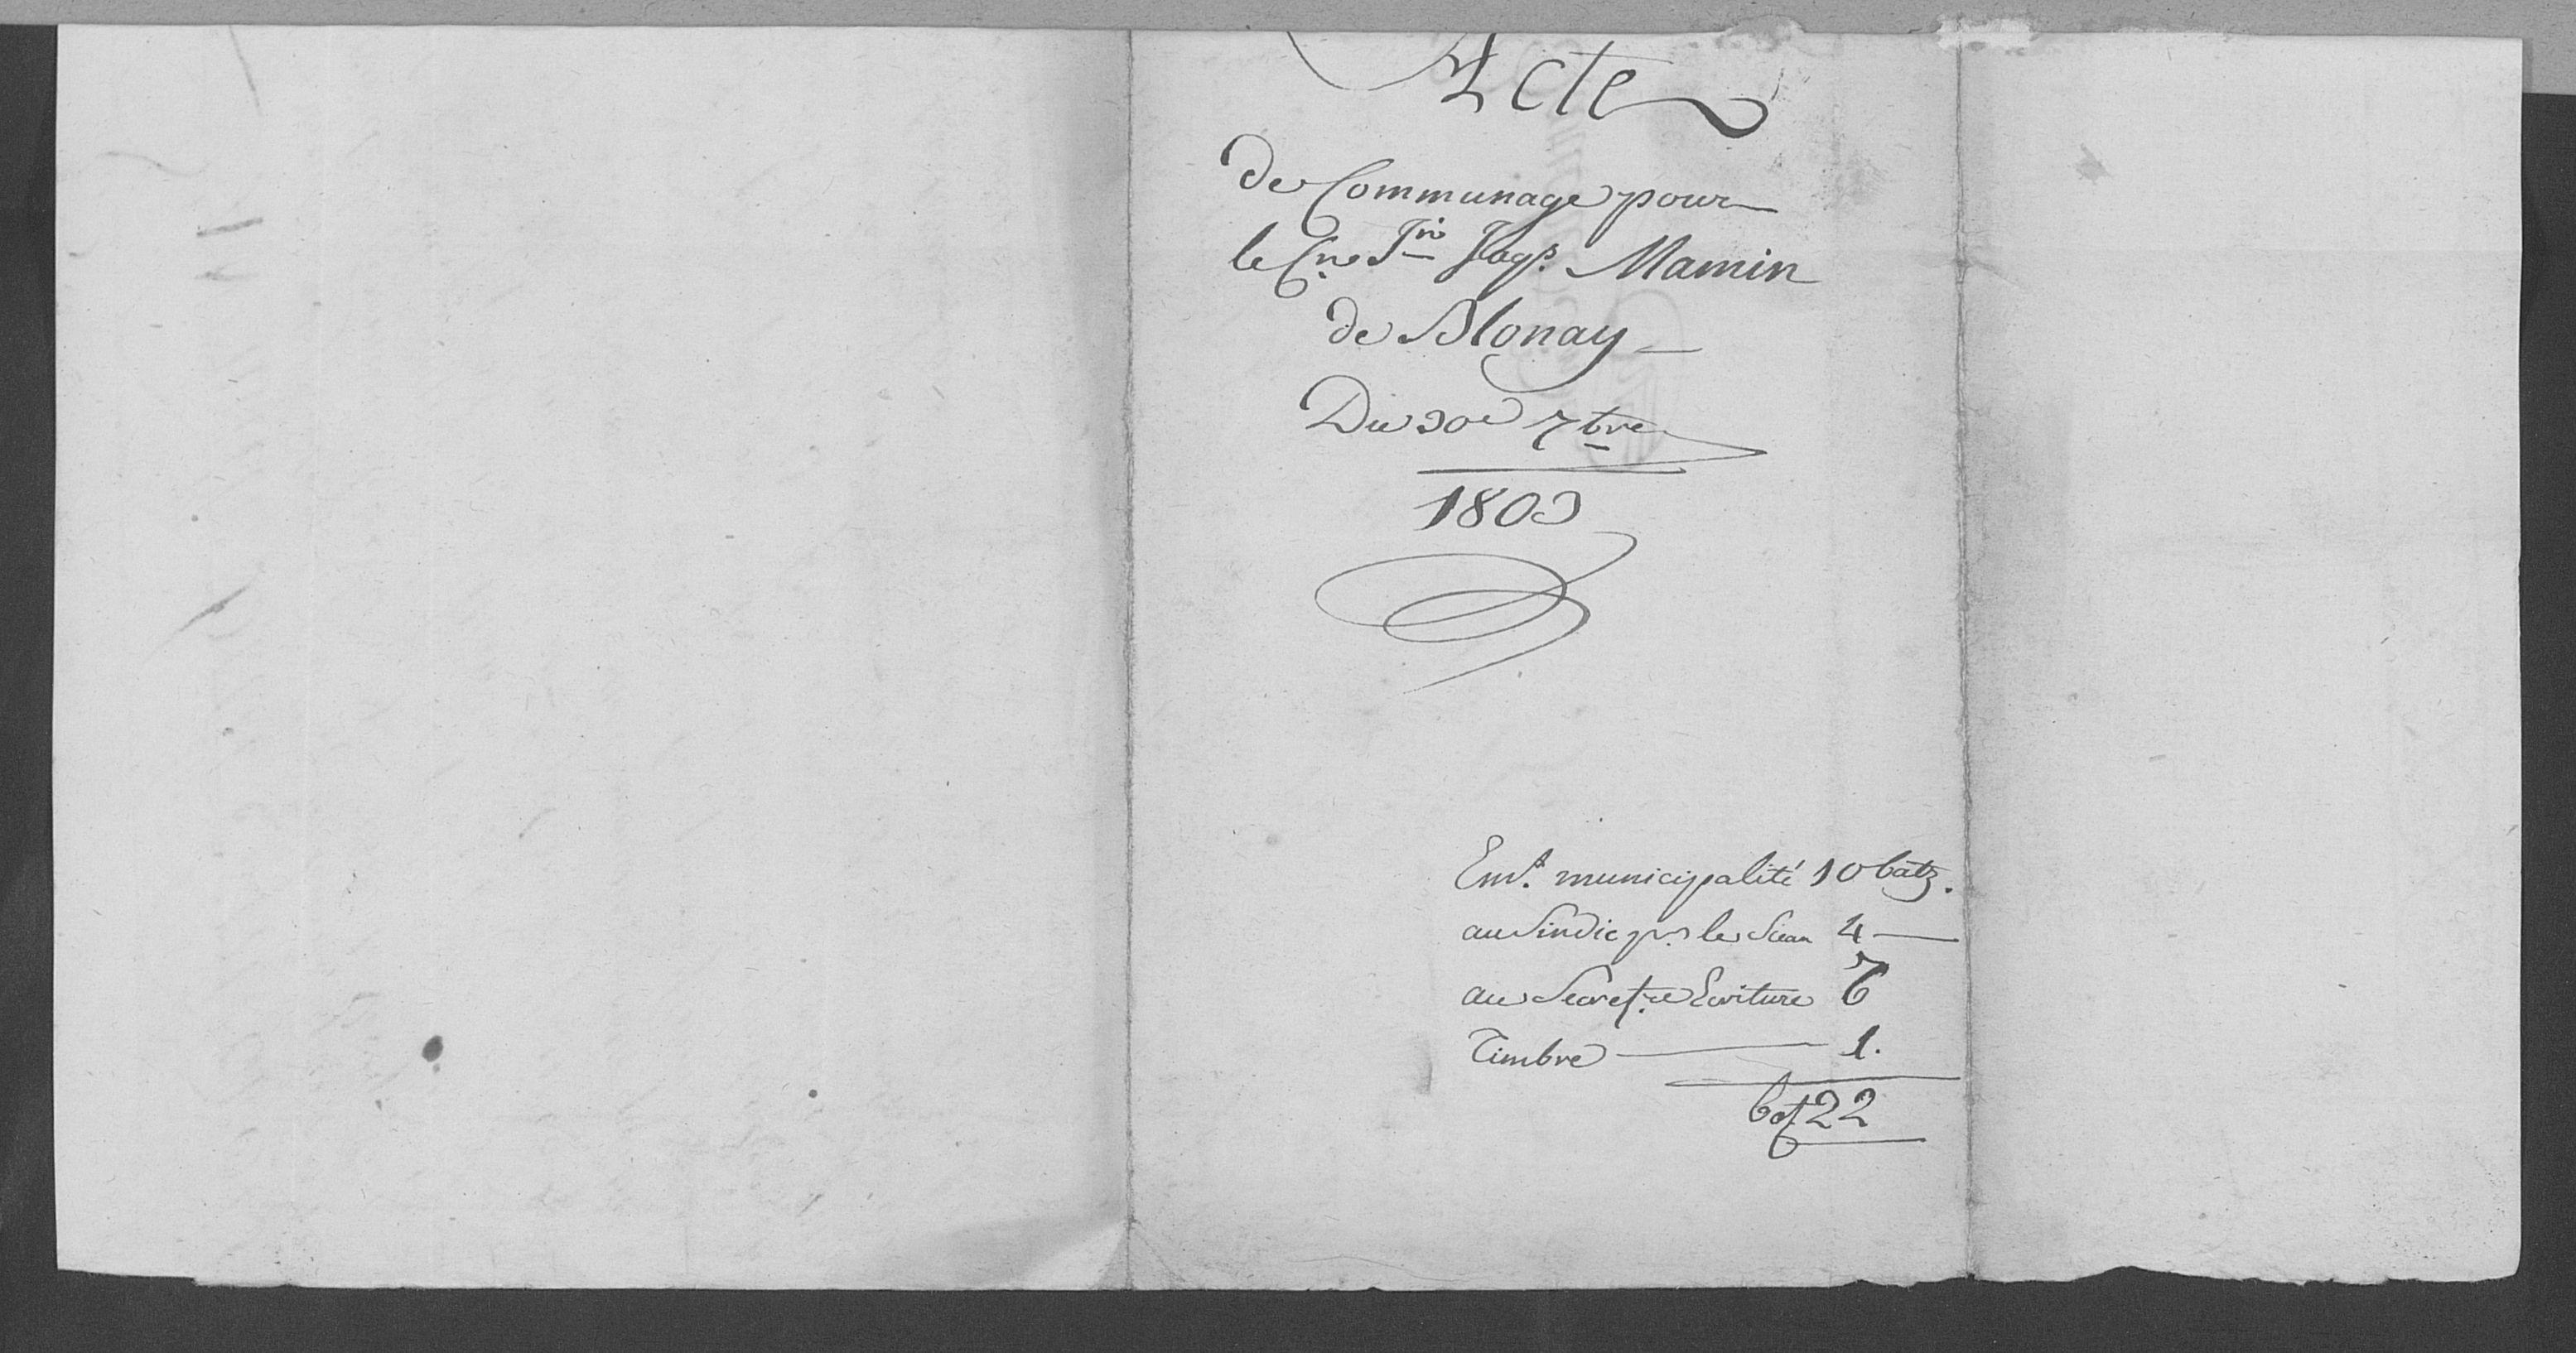 Acte
de Communage pour
le Cn. Jn Jaqs. Mamin
de Blonay
Du 30e 7bre
1803
Emt. municipalité 10 batz.
au Sindic pr. le Sceau 4
au Secret.re Ecriture 7
Timbre 1.
bat 22